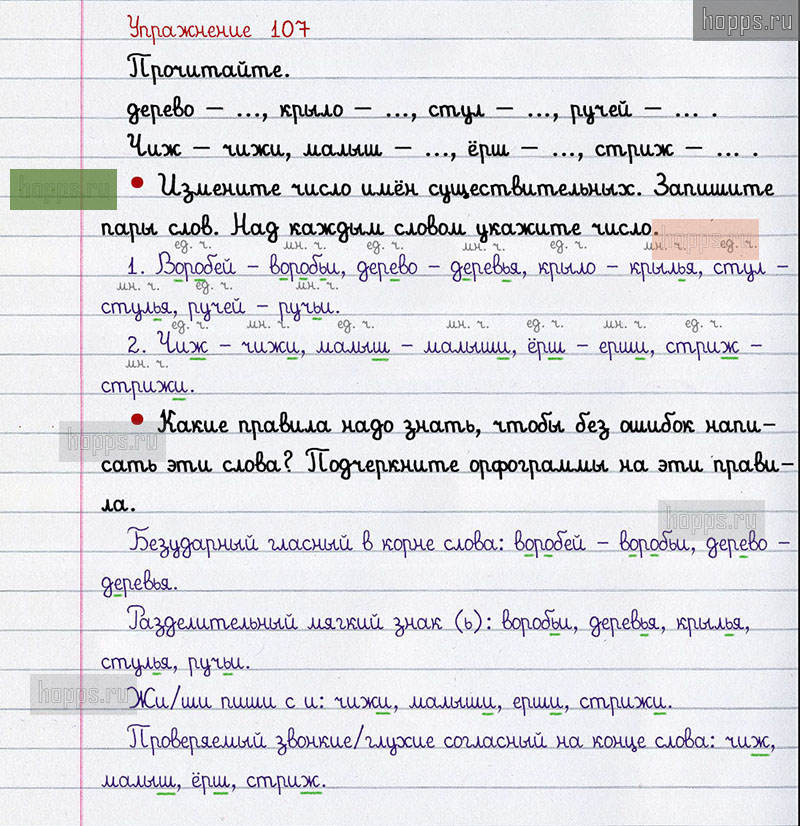 Упражнение 107
hopps.ru
Прочитайте.
дерево – ..., крыло – ..., стул – ..., ручей – ... .
Чиж – чижи, малыш – ..., ёрш – ..., стриж – ... .
hopps.ru
• Измените число имён существительных. Запишите
пары слов. Над каждым словом укажите число.
hopps.ru
ед. ч. мн. ч. ед. ч. мн. ч. ед. ч. мн. ч. ед. ч.
1. Воробей – воробьи, дерево – деревья, крыло – крылья, стул –
мн. ч. ед. ч. мн. ч.
стулья, ручей – ручьи.
ед. ч. мн. ч. ед. ч. мн. ч. ед. ч. мн. ч. ед. ч.
2. Чиж – чижи, малыш – малыши, ёрш – ерши, стриж –
мн. ч.
стрижи.
• Какие правила надо знать, чтобы без ошибок напи-
hopps.ru
сать эти слова? Подчеркните орфограммы на эти прави-
ла.
hopps.ru
Безударный гласный в корне слова: воробей – воробьи, дерево –
деревья.
Разделительный мягкий знак (ь): воробьи, деревья, крылья,
стулья, ручьи.
hopps.ru
Жи/ши пиши с и: чижи, малыши, ерши, стрижи.
Проверяемый звонкие/глухие согласный на конце слова: чиж,
малыш, ёрш, стриж.